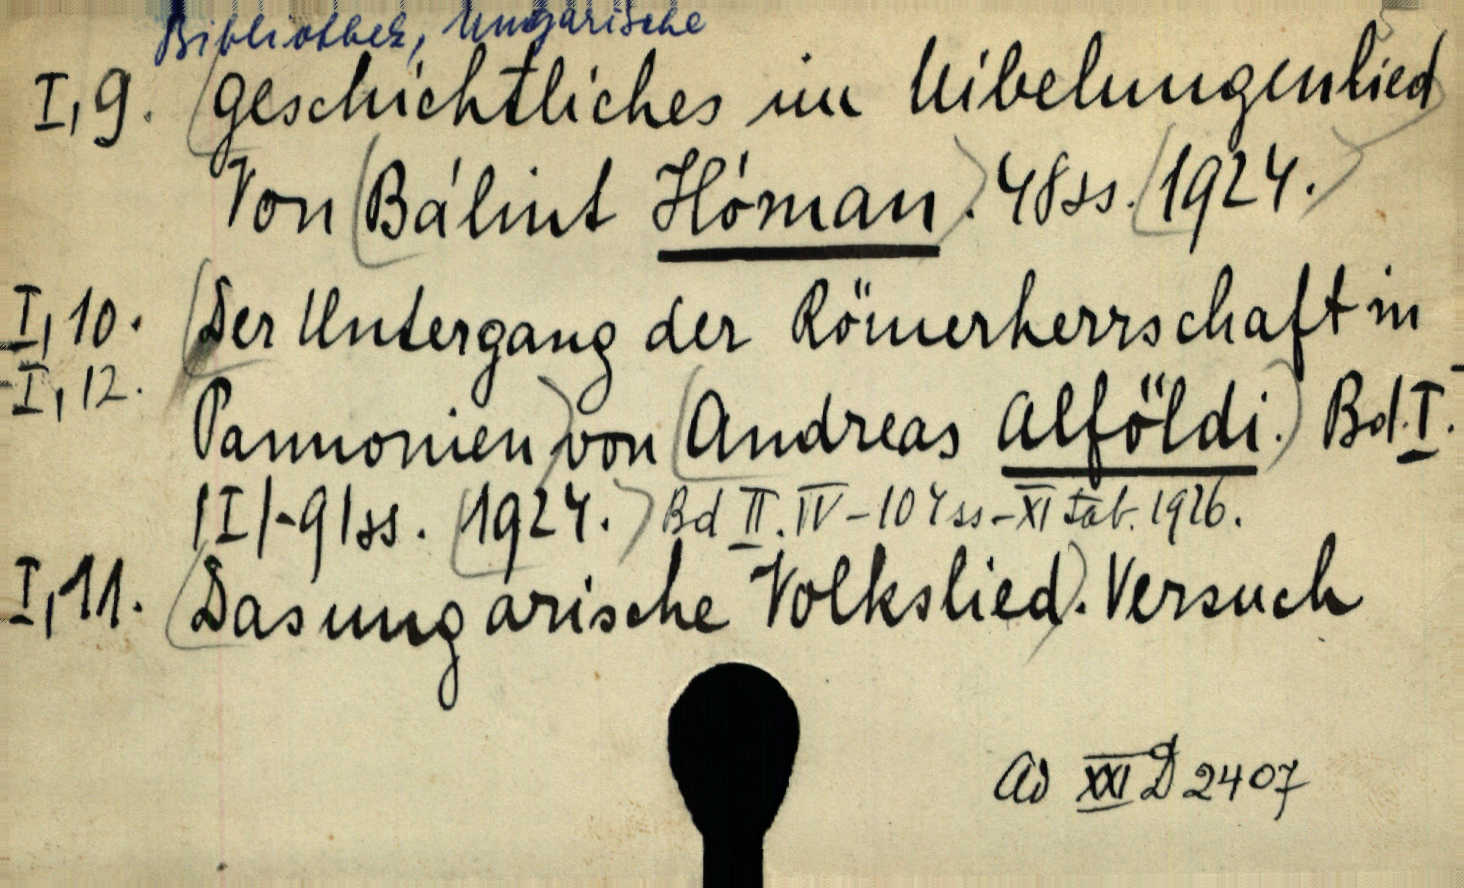 Bibliothek, Ungarische
I,9. (Geschichtliches im Nibelungenlied)
Von (Bálint Hóman). 48ss. (1924.)
I,10. (Der Untergang der Römerherrschaft in
I,12. Pannonien) von (Andreas Alföldi.) Bd. I.
|I|-91ss. (1924.) Bd II. IV-104ss-XI tab. 1926.
I,11. (Das ungarische Volkslied). Versuch
Ad XXI D 2407